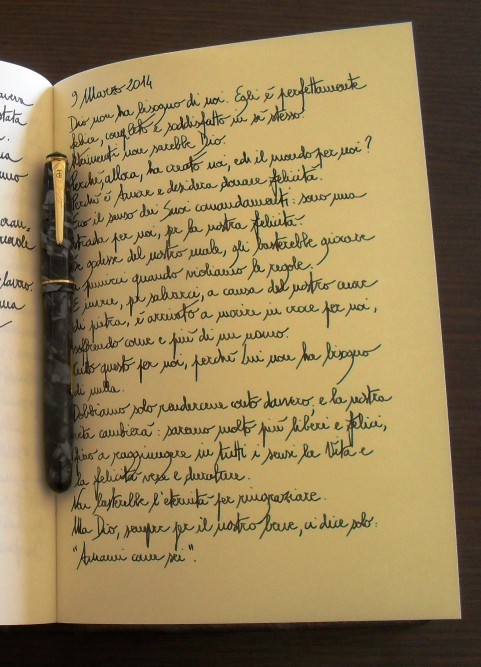 avera
stata
9 Marzo 2014
Dio non ha bisogno di noi. Egli è perfettamente
felice, completo e soddisfatto in sé stesso.
Altrimenti non sarebbe Dio.
Perché, allora, ha creato noi, ed il mondo per noi?
Perché è Amore e desidera donare felicità.
Ecco il senso dei Suoi comandamenti: sono una
strada per noi, per la nostra felicità.
Se godesse del nostro male, gli basterebbe giocare
a punirci quando violiamo le regole.
E invece, per salvarci, a causa del nostro cuore
di pietra, è arrivato a morire in croce per noi,
soffrendo come e più di un uomo.
Tutto questo per noi, perché Lui non ha bisogno
di nulla.
Dobbiamo solo rendercene conto davvero, e la nostra
vita cambierà: saremo molto più liberi e felici,
fino a raggiungere in tutti i sensi la Vita e
la felicità vera e duratura.
Non basterebbe l'eternità per ringraziare.
Ma Dio, sempre per il nostro bene, ci dice solo:
"Amami come sei".